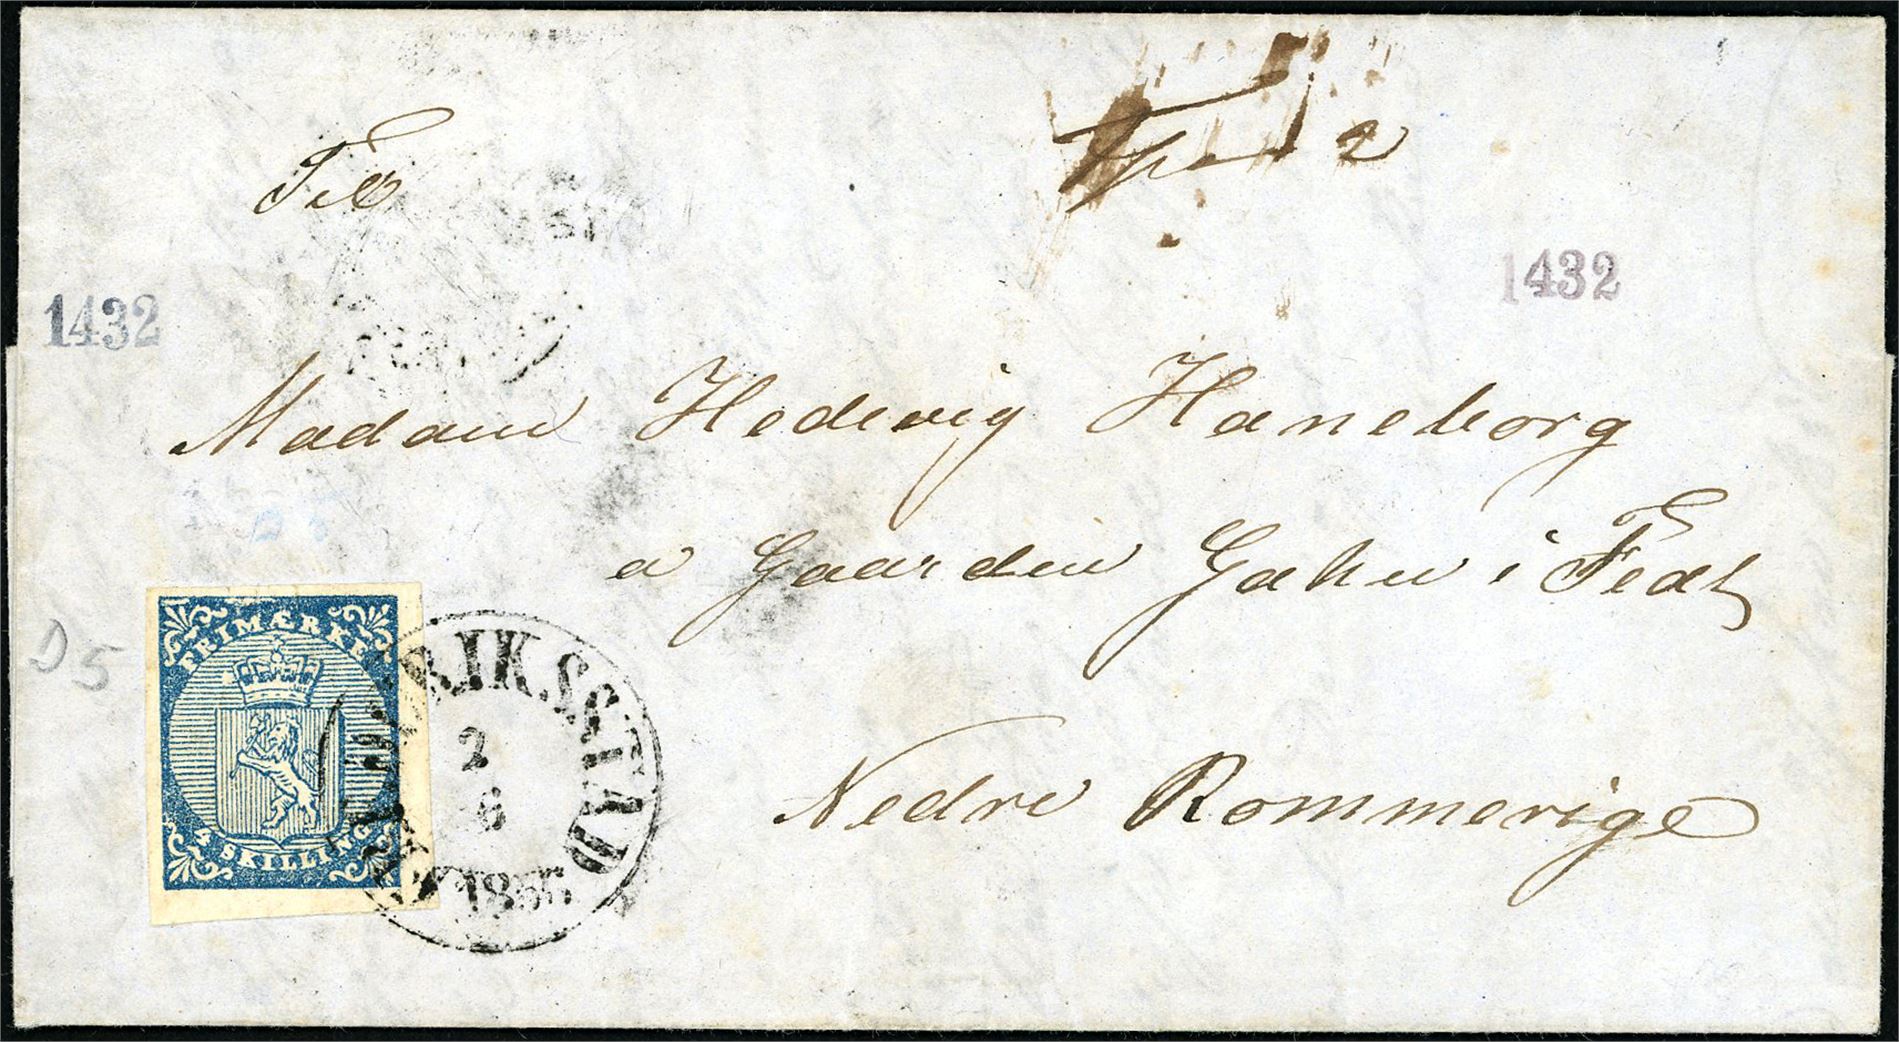 Til
1432
1432
Madam Hedevig Haneborg
a Gaarden Gahn i Fedt
Nedre Rommerige
D5
FRIMÆRKE
4 SKILLING
FREDRIKSSTAD
2
6
1855